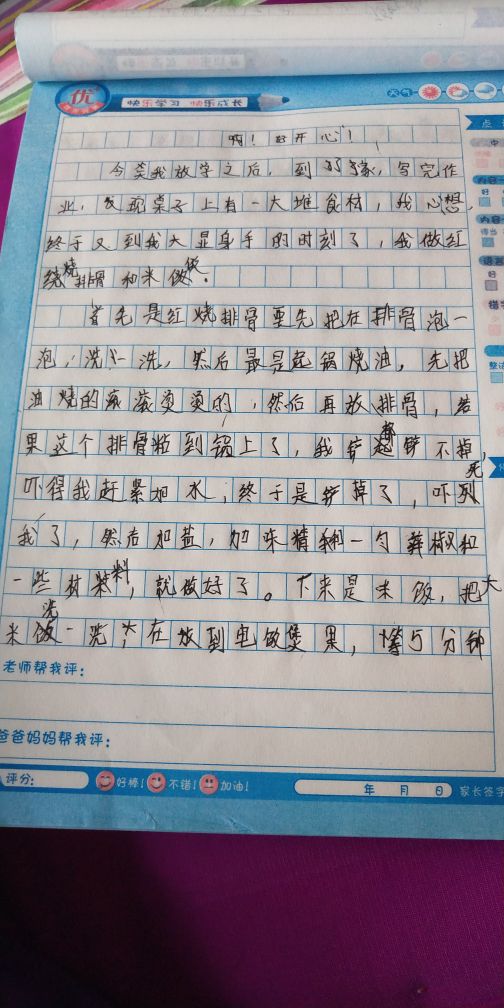 优
快乐学习 快乐成长
天气
啊！好开心！
今天我放学之后，到了家，写完作
业，发现桌子上有一大堆食材，我心想，
终于又到我大显身手的时刻了，我做红
烧排骨和米饭。
首先是红烧排骨要先把在排骨泡一
泡，洗一洗，然后最是起锅烧油，先把
油烧的滚滚烫烫的，然后再放排骨，结
果这个排骨粘到锅上了，我铲都铲不掉，
吓得我赶紧加水，终于是铲掉了，吓死
我了，然后加盐，加味精和一勺辣椒和
一些材料，就做好了。下来是米饭，把大
米洗一洗，在放到电饭煲里，等5分钟
老师帮我评：
爸爸妈妈帮我评：
评分： 好棒！ 不错！ 加油！
年 月 日 家长签字